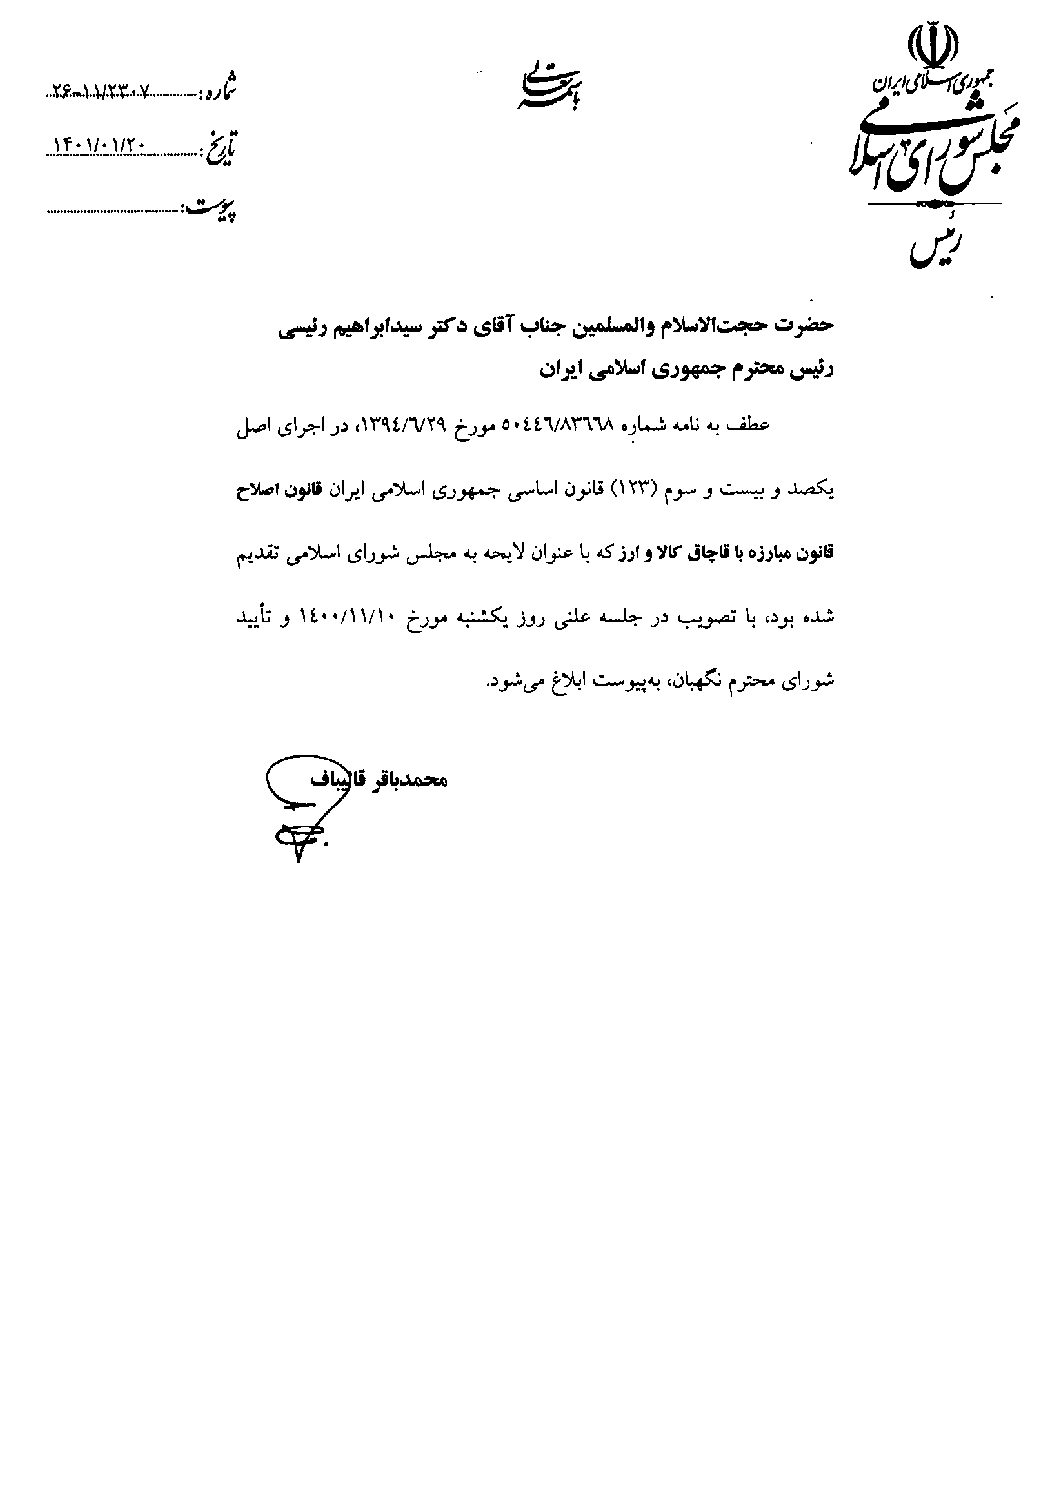 جمهوری اسلامی ایران
مجلس شورای اسلامی
رئیس
باسمه تعالی
شماره: ۲۶-۱۱/۲۳۰۷
تاریخ: ۱۴۰۱/۰۱/۲۰
پیوست:
حضرت حجت‌الاسلام والمسلمین جناب آقای دکتر سیدابراهیم رئیسی
رئیس محترم جمهوری اسلامی ایران
عطف به نامه شماره ۵۰۴۴٦/۸۳٦٦۸ مورخ ۱۳۹٤/٦/۲۹، در اجرای اصل
یکصد و بیست و سوم (۱۲۳) قانون اساسی جمهوری اسلامی ایران قانون اصلاح
قانون مبارزه با قاچاق کالا و ارز که با عنوان لایحه به مجلس شورای اسلامی تقدیم
شده بود، با تصویب در جلسه علنی روز یکشنبه مورخ ۱٤۰۰/۱۱/۱۰ و تأیید
شورای محترم نگهبان، به‌پیوست ابلاغ می‌شود.
محمدباقر قالیباف